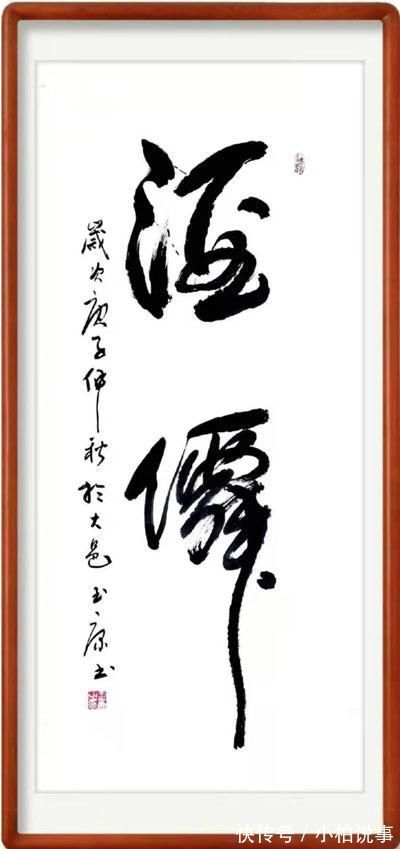 酒僊
歲次庚子仲秋於大邑 玉康书
快传号 / 小柏说事